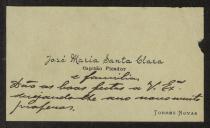 José Maria Santa Clara
Capitão Picador
e familia,
Dão as boas festas a V. Exª
desejando-lhe ano novo muito
prospero.
Torres Novas